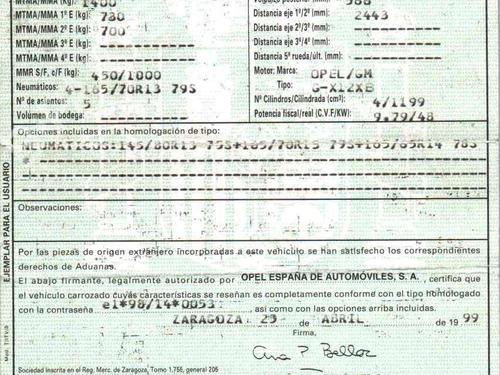 MTMA/MMA (kg): 1400
MTMA/MMA 1º E (kg): 730
MTMA/MMA 2º E (kg): 700
MTMA/MMA 3º E (kg):
MTMA/MMA 4º E (kg):
MMR S/F, c/F (kg): 450/1000
Neumáticos: 4-165/70R13 79S
Nº de asientos: 5
Volumen de bodega:
Distancia eje 1º/2º (mm): 2443
Distancia eje 2º/3º (mm):
Distancia eje 3º/4º (mm):
Distancia 5ª rueda/últ. (mm):
Motor: Marca: OPEL/GM
Tipo: G-X12XE
Nº Cilindros/Cilindrada (cm³): 4/1199
Potencia fiscal/real (C.V.F/KW): 9.79/48
Opciones incluidas en la homologación de tipo:
NEUMATICOS:145/80R13 75S+165/70R13 79S+165/65R14 78S
Observaciones:
Por las piezas de origen extranjero incorporadas a este vehículo se han satisfecho los correspondientes
derechos de Aduanas.
El abajo firmante, legalmente autorizado por OPEL ESPAÑA DE AUTOMÓVILES, S. A., certifica que
el vehículo carrozado cuyas características se reseñan es completamente conforme con el tipo homologado
con la contraseña e1*98/14*0053, así como con las opciones arriba incluidas.
ZARAGOZA 23 de ABRIL de 19 99
Firma,
Sociedad Inscrita en el Reg. Merc. de Zaragoza, Tomo 1.755, general 205
EJEMPLAR PARA EL USUARIO